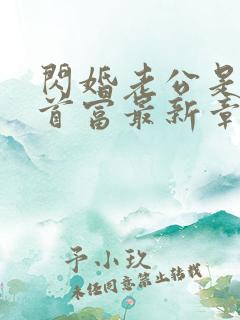 閃婚老公是
首富最新章
予小玖
未经同意禁止转载